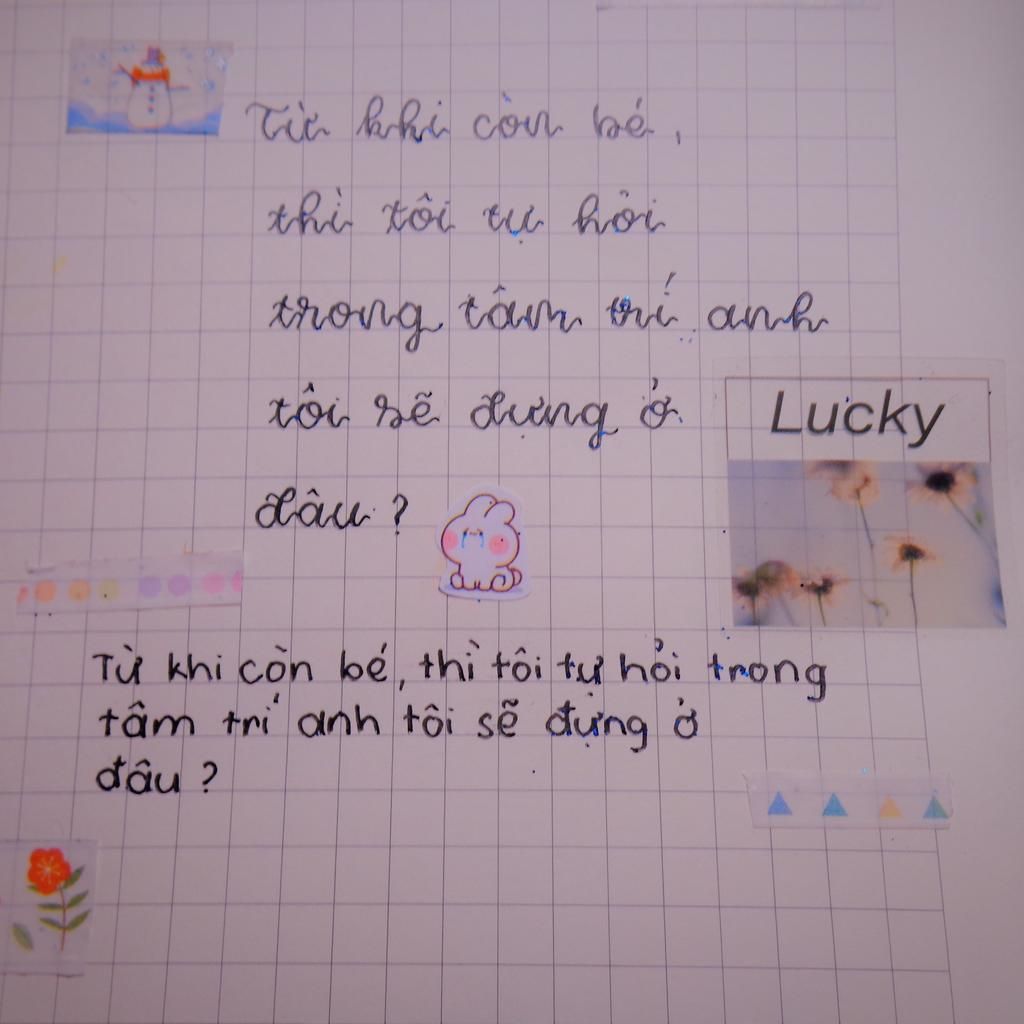 Từ khi còn bé,
thì tôi tự hỏi
trong tâm trí anh
tôi sẽ đựng ở
đâu?
Lucky
Từ khi còn bé, thì tôi tự hỏi trong
tâm trí anh tôi sẽ đựng ở
đâu?